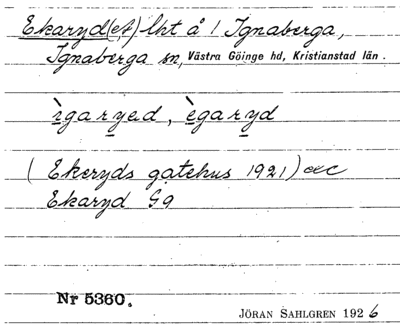 Ekaryd(et) lht å 1 Ignaberga,
Ignaberga sn, Västra Göinge hd, Kristianstad län.
ìgaryed, ègaryd
(Ekeryds gatehus 1921) acc
Ekaryd G9
Nr 5360.
JÖRAN SAHLGREN 1926